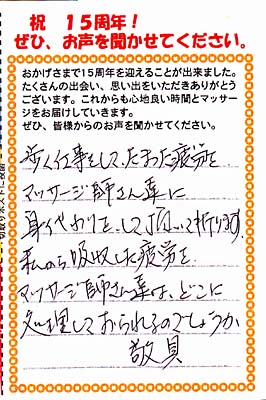 祝 15周年!
ぜひ、お声を聞かせてください。
おかげさまで15周年を迎えることが出来ました。
たくさんの出会い、思い出をいただきありがとう
ございます。これからも心地良い時間とマッサー
ジをお届けしていきます。
ぜひ、皆様からのお声を聞かせてください。
歩く仕事をして、たまった疲労を
マッサージ師さん達に
身代わりをして頂いて折ります。
私から吸収した疲労を
マッサージ師さん達は、どこに
処理しておられるのでしょうか
敬具